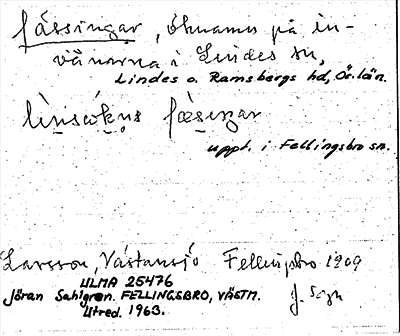 fässingar, öknamn på in-
vånarna i Lindes sn,
Lindes o. Ramsbergs hd, Ör. län.
fæsiŋar
uppt. i Fellingsbro sn.
Larsson, Västansjö Fellingsbro 1909
ULMA 25476
Jöran Sahlgren. FELLINGSBRO, VÄSTM.
Utred. 1963.